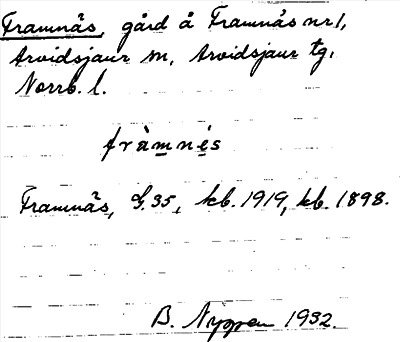 Framnäs, gård å Framnäs nr 1,
Arvidsjaur sn, Arvidsjaur tg,
Norrb. l.
fràmnés
Framnäs, G.35, kb. 1919, kb. 1898.
B. Nygren 1932.